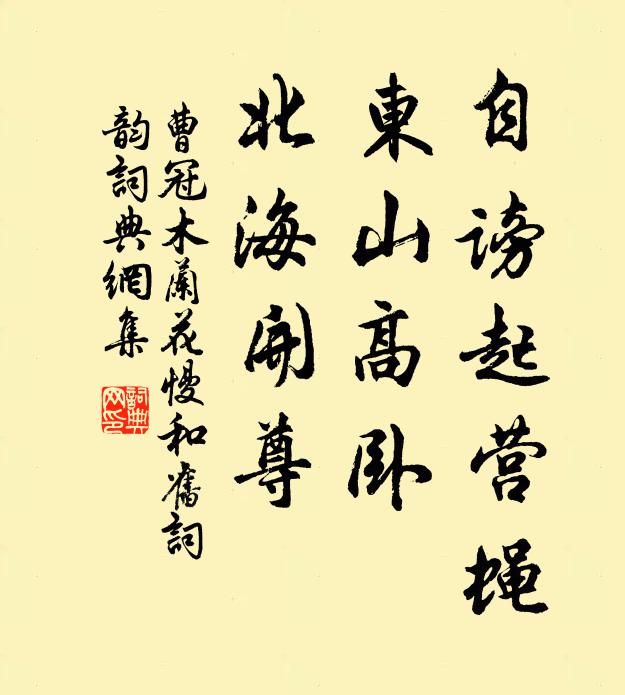 自谤起营蝇
東山高卧
北海開尊
曹冠木蘭花慢和舊詞
韵詞典網集
詞典
网印